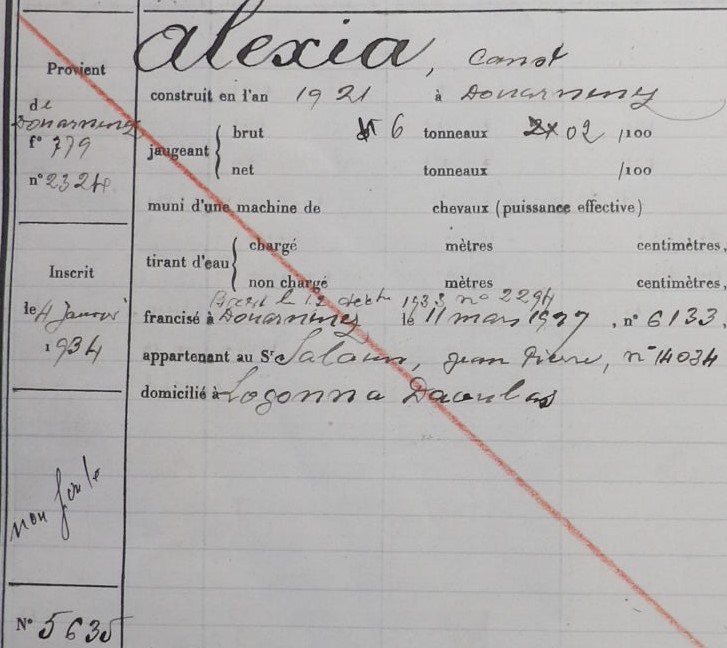 Alexia, Canot
construit en l'an 1921 à Douarnenez
jaugeant brut 6 tonneaux 02 /100
net tonneaux /100
muni d'une machine de chevaux (puissance effective)
tirant d'eau chargé mètres centimètres,
non chargé mètres centimètres,
Brest le 12 dect 1933 n° 2294
francisé à Douarnenez le 11 mars 1927, n° 6133
appartenant au Sr Salaun, Jean Pierre, n° 14034
domicilié à Logonna Daoulas
Provient
de
Douarnenez
f° 779
n° 2324
Inscrit
le 4 Janvier
1934
non
N° 5635